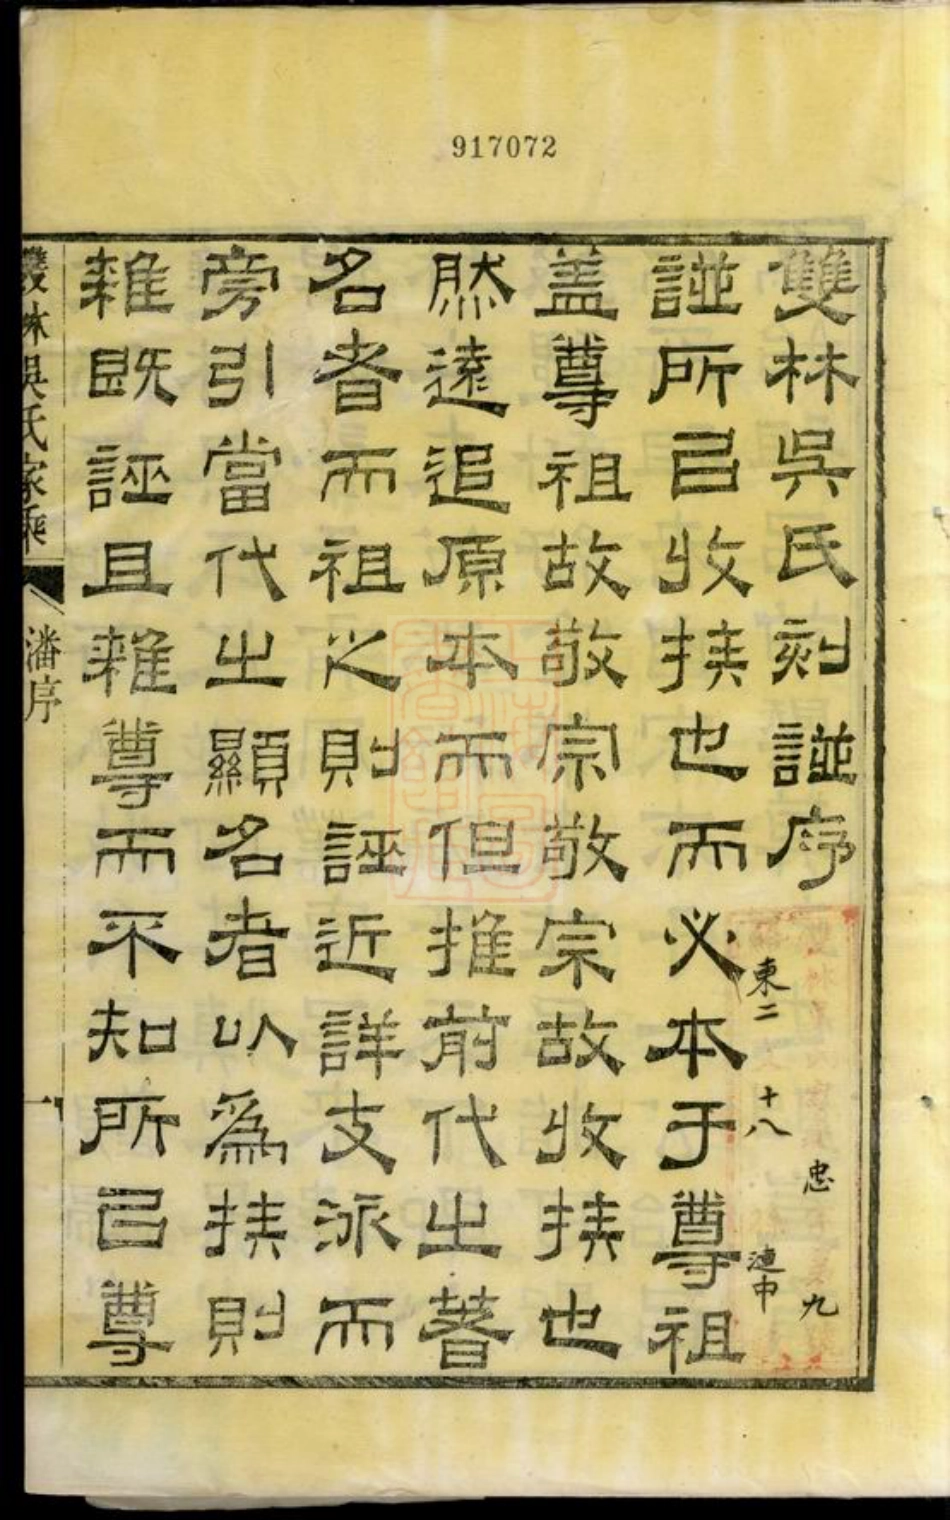 917072
雙林吳氏刻譜序
譜所㠯收族也而必本于尊祖
蓋尊祖故敬宗敬宗故收族也
然遠追原本而但推前代之著
名者而祖之則誣近詳支派而
旁引當代之顯名者以為族則
雜既誣且雜尊而不知所㠯尊
雙林吳氏家乘
潘序
一
東二
十八
忠
九